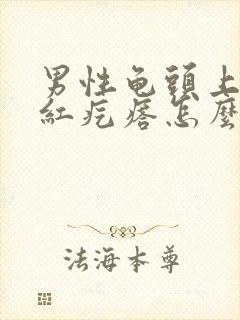 男性龟頭上
紅疙瘩怎麼
法海本尊